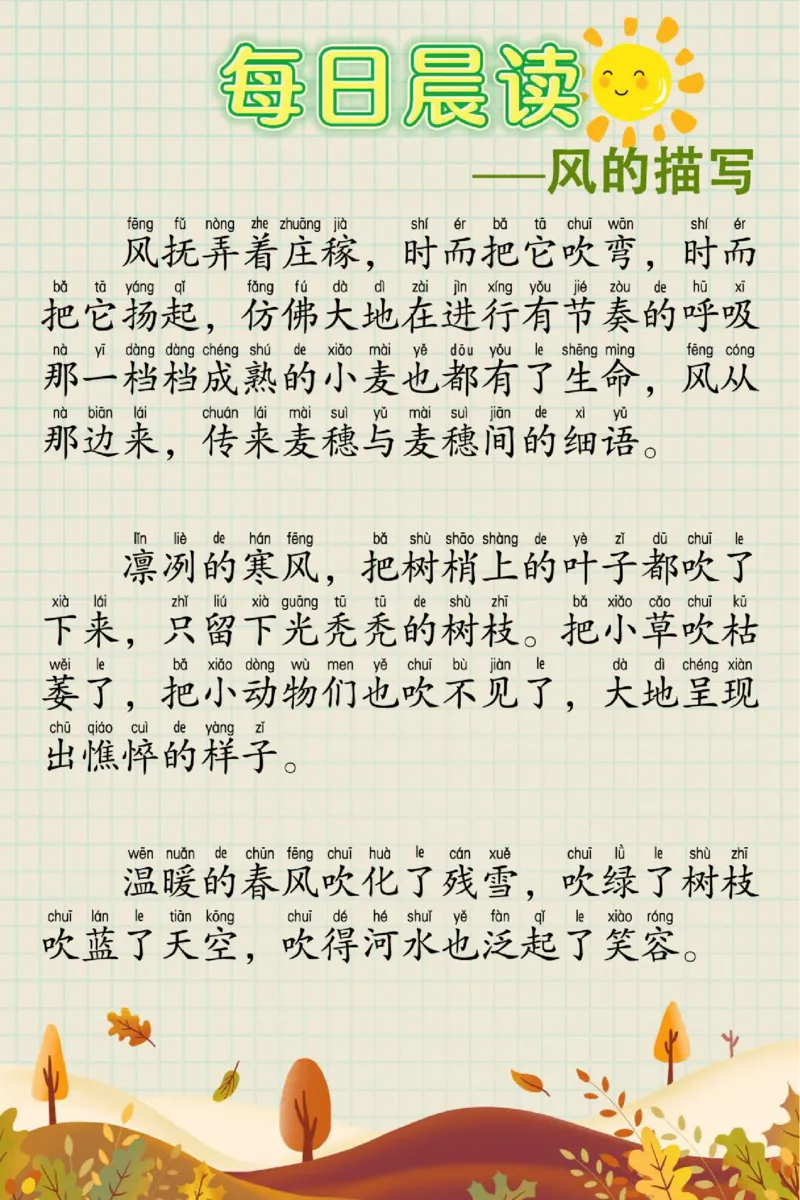 每日晨读
——风的描写
fēng fǔ nòng zhe zhuāng jià shí ér bǎ tā chuī wān shí ér
风抚弄着庄稼，时而把它吹弯，时而
bǎ tā yáng qǐ fǎng fú dà dì zài jìn xíng yǒu jié zòu de hū xī
把它扬起，仿佛大地在进行有节奏的呼吸
nà yī dàng dàng chéng shú de xiǎo mài yě dōu yǒu le shēng mìng fēng cóng
那一档档成熟的小麦也都有了生命，风从
nà biān lái chuán lái mài suì yǔ mài suì jiān de xì yǔ
那边来，传来麦穗与麦穗间的细语。
lǐn liè de hán fēng bǎ shù shāo shàng de yè zǐ dū chuī le
凛冽的寒风，把树梢上的叶子都吹了
xià lái zhǐ liú xià guāng tū tū de shù zhī bǎ xiǎo cǎo chuī kū
下来，只留下光秃秃的树枝。把小草吹枯
wěi le bǎ xiǎo dòng wù men yě chuī bù jiàn le dà dì chéng xiàn
萎了，把小动物们也吹不见了，大地呈现
chū qiáo cuì de yàng zǐ
出憔悴的样子。
wēn nuǎn de chūn fēng chuī huà le cán xuě chuī lǜ le shù zhī
温暖的春风吹化了残雪，吹绿了树枝
chuī lán le tiān kōng chuī dé hé shuǐ yě fàn qǐ le xiào róng
吹蓝了天空，吹得河水也泛起了笑容。